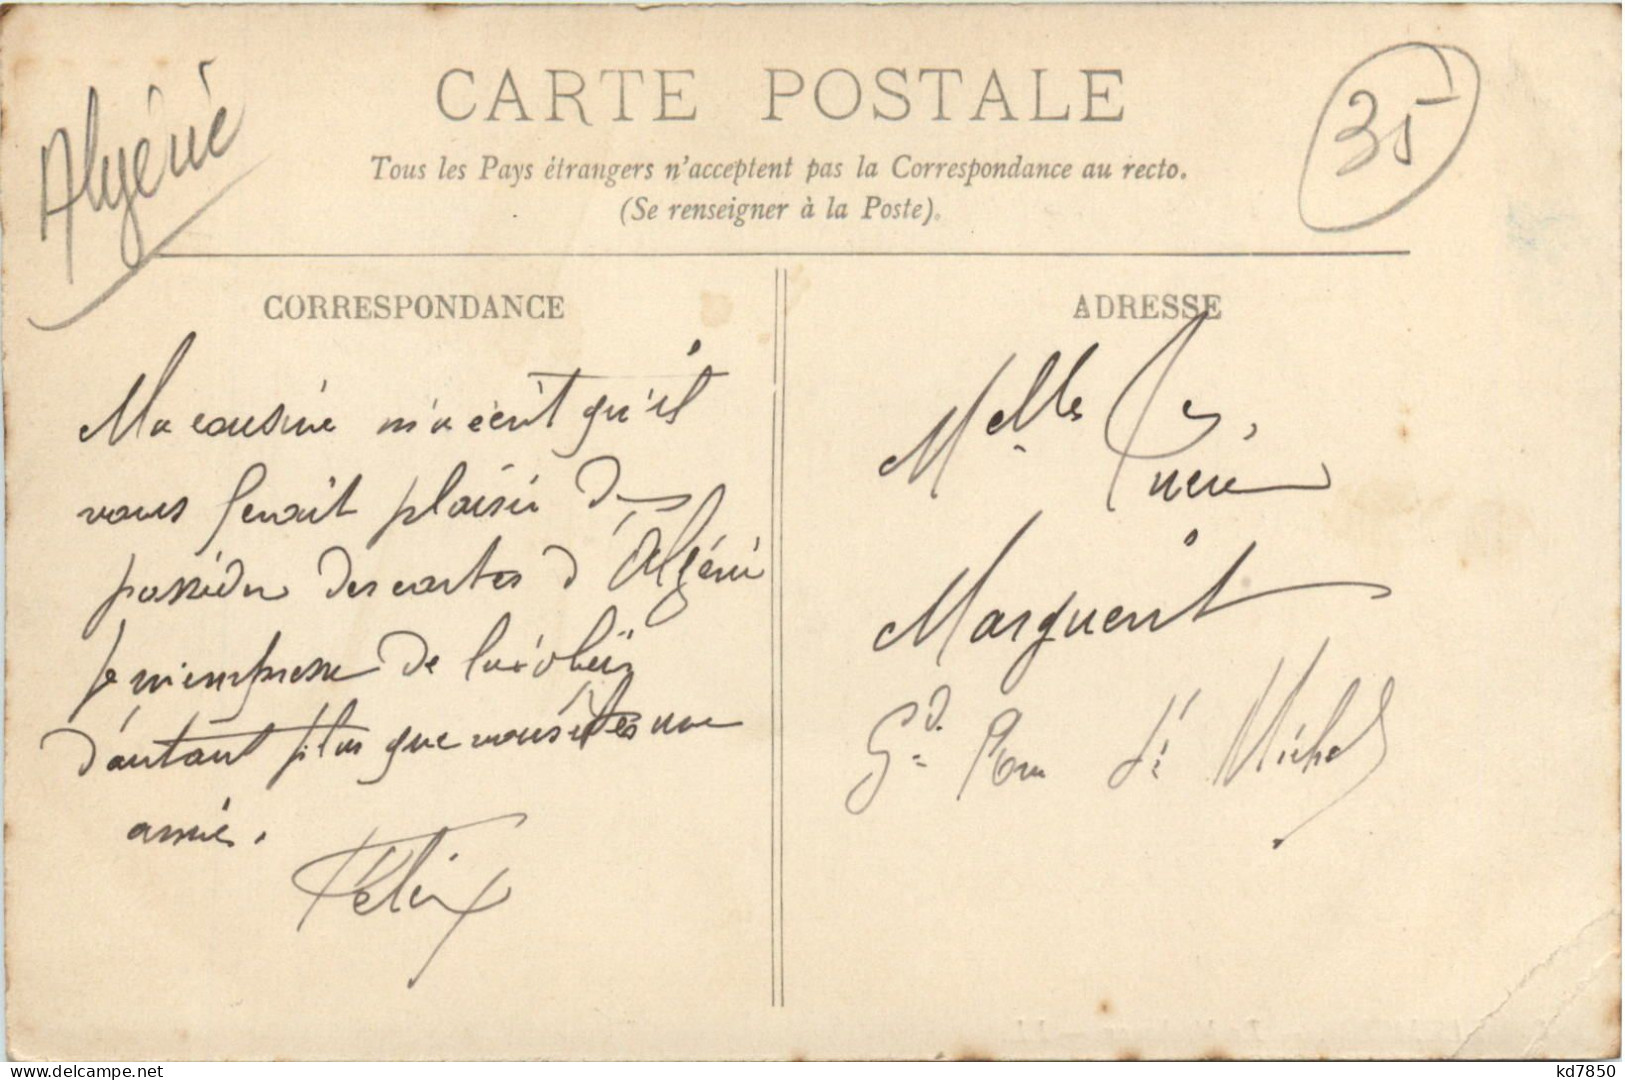 Algérie
CARTE POSTALE
35
Tous les Pays étrangers n'acceptent pas la Correspondance au recto.
(Se renseigner à la Poste).
CORRESPONDANCE
Ma cousine m'a écrit qu'il
vous ferait plaisir de
posséder des cartes d'Algérie
je m'empresse de lui obéir
d'autant plus que vous êtes une
amie.
Félix
ADRESSE
Melle Lucie
Marguerit
Gde Rue St Michel
kd7850